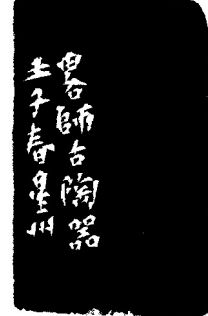 畧師古陶器
壬子春星州